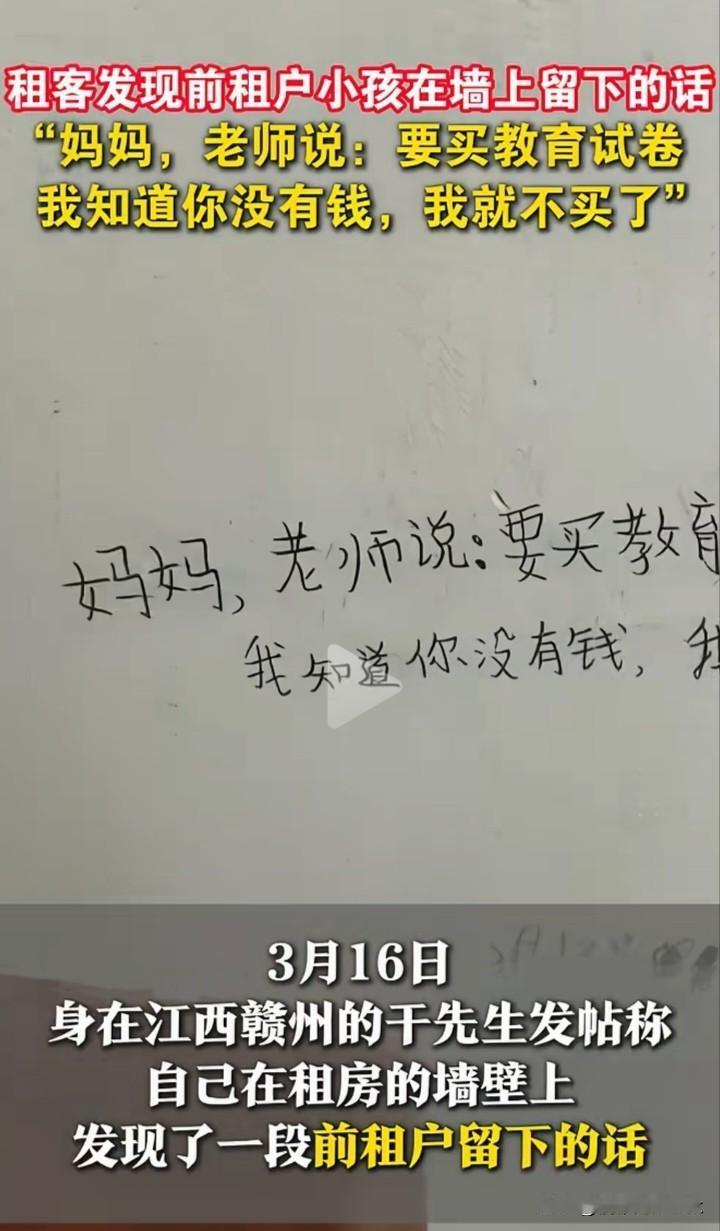 租客发现前租户小孩在墙上留下的话
“妈妈，老师说：要买教育试卷
我知道你没有钱，我就不买了”
妈妈，老师说：要买教育
我知道你没有钱，我
3月16日
身在江西赣州的干先生发帖称
自己在租房的墙壁上
发现了一段前租户留下的话